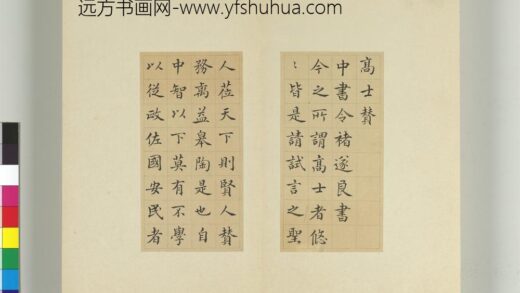 远方书画网-www.yfshuhua.com
髙士賛
中書令褚遂良書
今之所謂髙士者悠
〻皆是請試言之聖
人莅天下則賢人賛
務禼益皋陶是也自
中智以下莫有不學
以從政佐國安民者